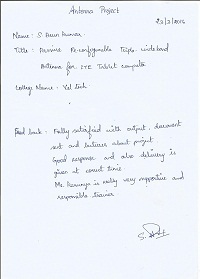 Antenna Project
23/3/2016
Name : S. Arun Kumar
Title : Passive Re-configurable Triple-wideband
Antenna for LTE Tablet computer
College Name - Vel Tech
Feed back - Fully satisfied with output, document
and about project
Good response and also delivery is
given at correct time
Mr. is really very supportive and
responsible trainer